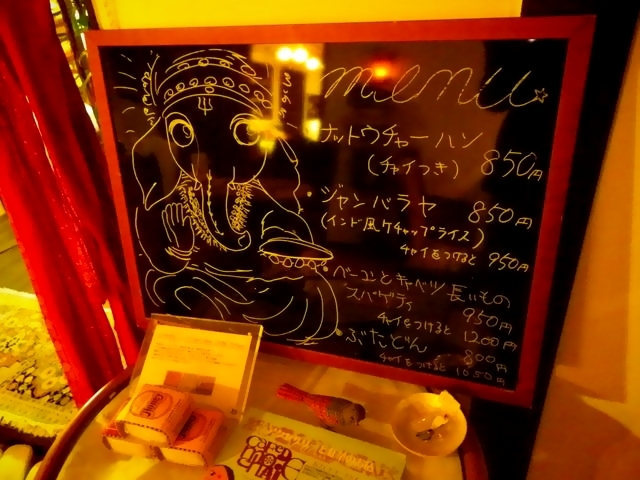 menu
ナットウチャーハン
(チャイつき) 850円
・ジャンバラヤ 850円
(インド風ケチャップライス)
チャイをつけると 950円
・ベーコンとキャベツ 長いもの
スパゲティ 950円
チャイをつけると 1200円
・ぶたどん 800円
チャイをつけると 1050円